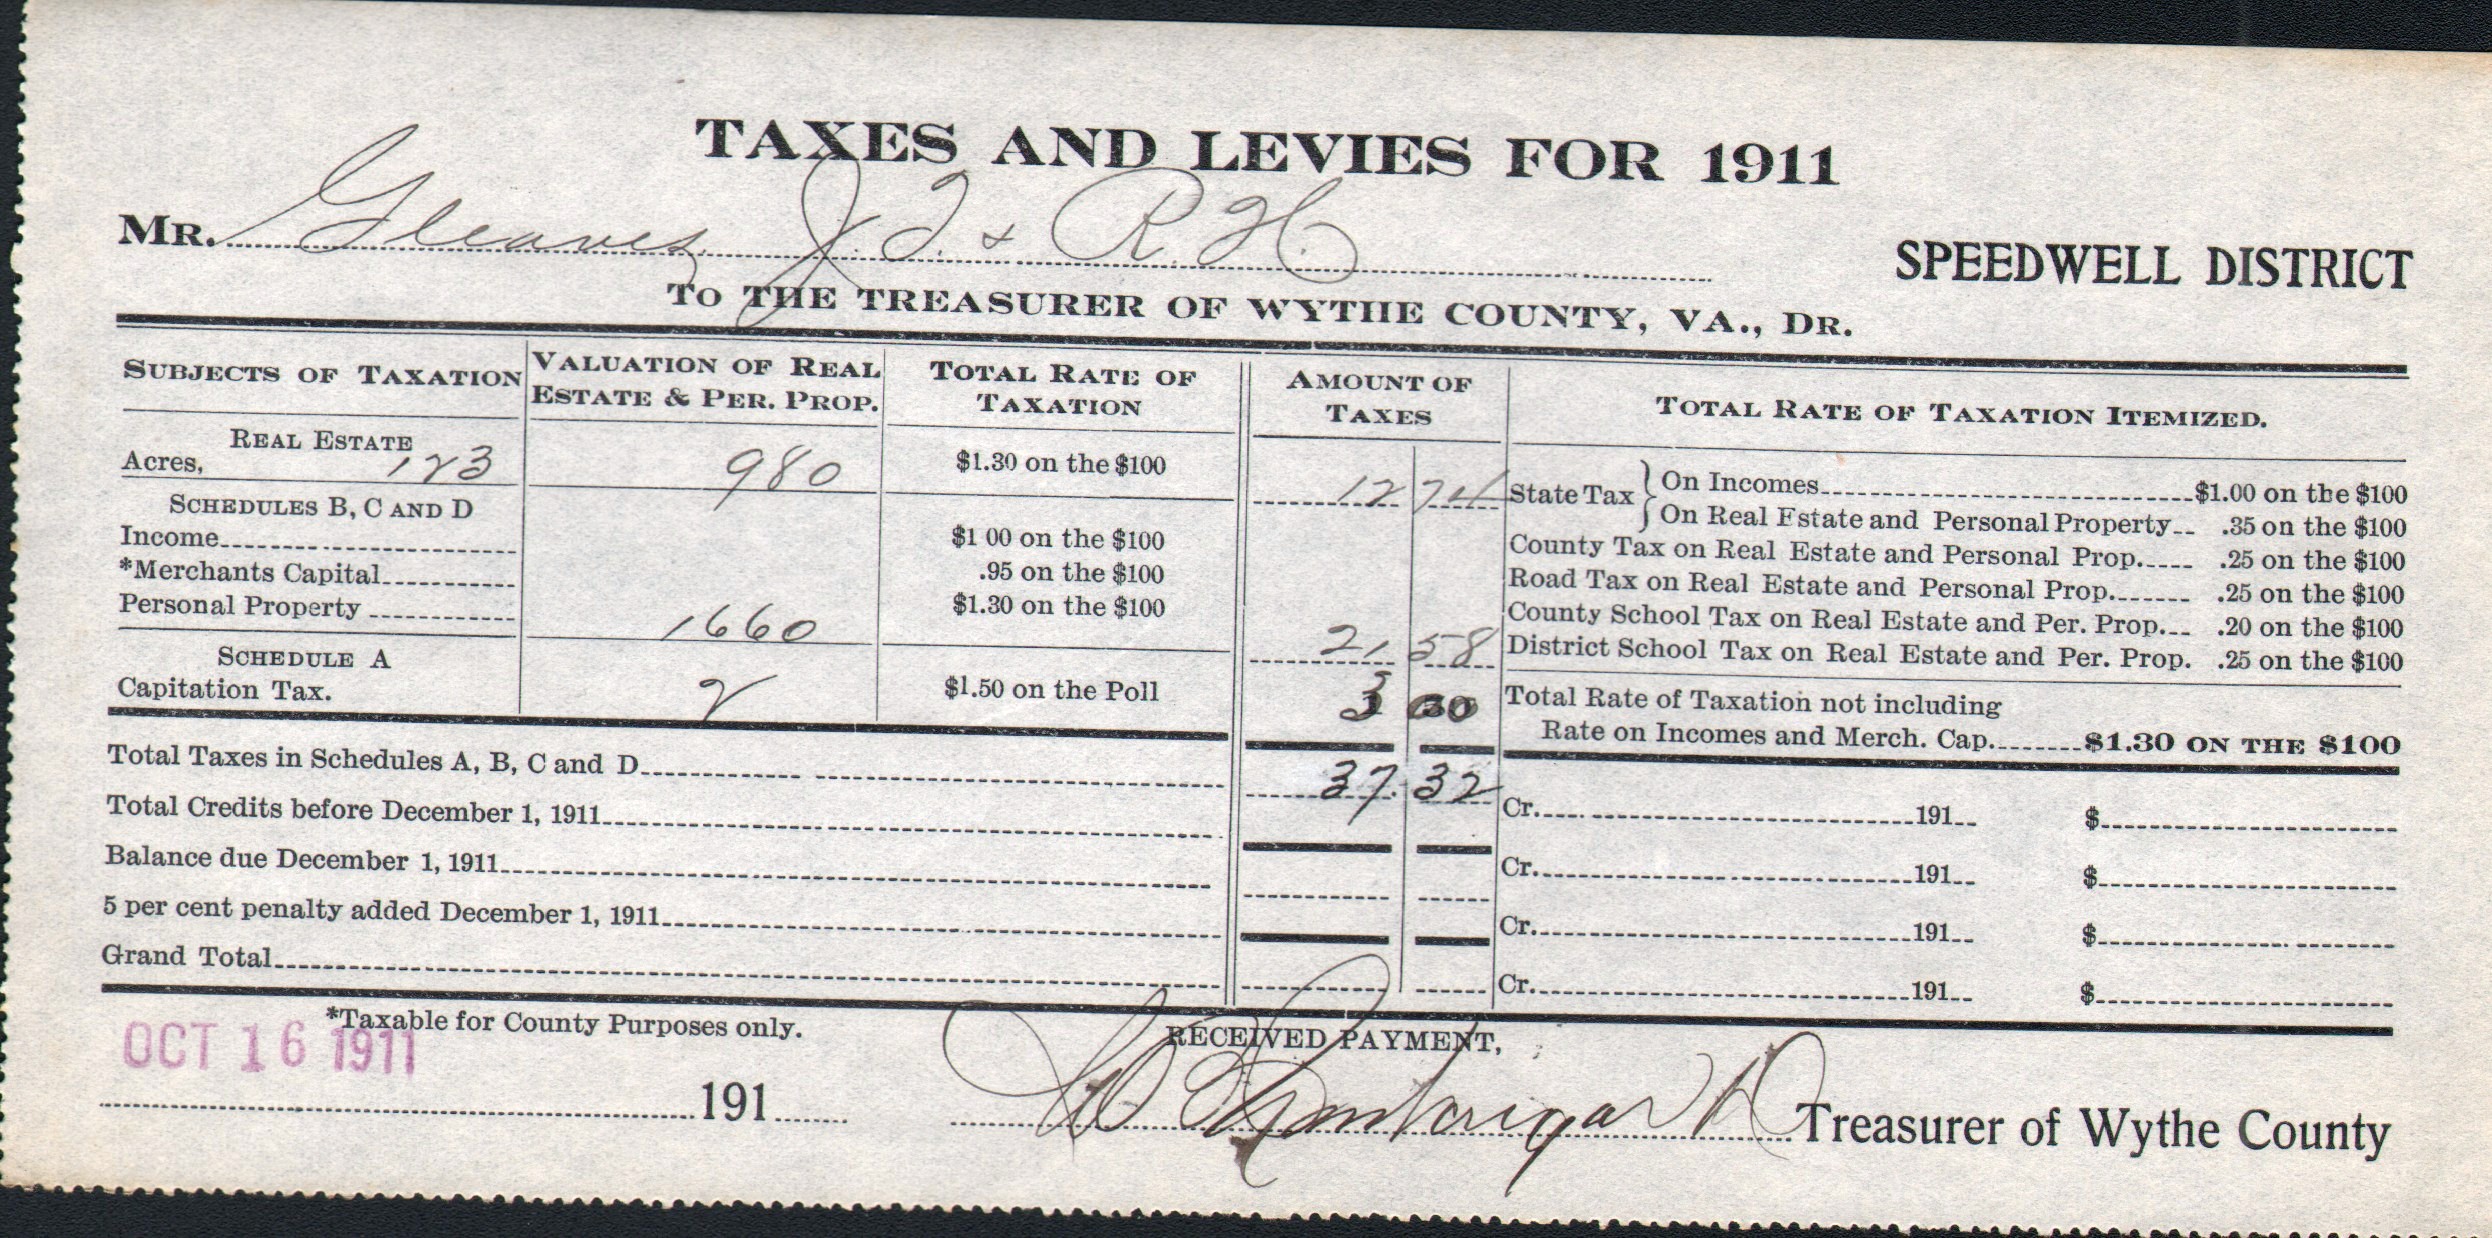 TAXES AND LEVIES FOR 1911
MR. Gleaves, J. T. & R. H.
SPEEDWELL DISTRICT
TO THE TREASURER OF WYTHE COUNTY, VA., DR.
SUBJECTS OF TAXATION
VALUATION OF REAL ESTATE & PER. PROP.
TOTAL RATE OF TAXATION
AMOUNT OF TAXES
TOTAL RATE OF TAXATION ITEMIZED.
REAL ESTATE
Acres, 123 980 $1.30 on the $100 12 74
SCHEDULES B, C AND D
Income $1 00 on the $100
*Merchants Capital .95 on the $100
Personal Property 1660 $1.30 on the $100 21 58
SCHEDULE A
Capitation Tax. 2 $1.50 on the Poll 3 00
State Tax } On Incomes $1.00 on the $100
On Real Estate and Personal Property .35 on the $100
County Tax on Real Estate and Personal Prop. .25 on the $100
Road Tax on Real Estate and Personal Prop. .25 on the $100
County School Tax on Real Estate and Per. Prop. .20 on the $100
District School Tax on Real Estate and Per. Prop. .25 on the $100
Total Rate of Taxation not including
Rate on Incomes and Merch. Cap. $1.30 ON THE $100
Total Taxes in Schedules A, B, C and D 37.32
Total Credits before December 1, 1911
Balance due December 1, 1911
5 per cent penalty added December 1, 1911
Grand Total
Cr. 191 $
Cr. 191 $
Cr. 191 $
Cr. 191 $
*Taxable for County Purposes only.
OCT 16 1911
RECEIVED PAYMENT,
191
Treasurer of Wythe County